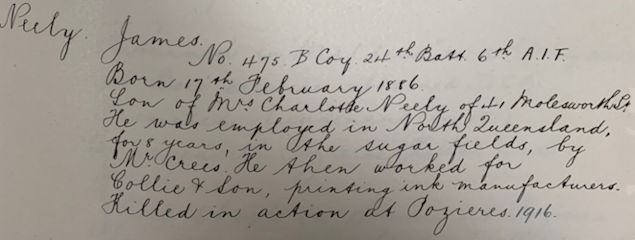 Neely. James.
No. 475 B Coy. 24th Batt. 6th A.I.F.
Born 17th February 1886.
Son of Mrs Charlotte Neely of 41 Molesworth St.
He was employed in North Queensland,
for 8 years, in the sugar fields, by
Mr. Crees. He then worked for
Collie & Son, printing ink manufacturers.
Killed in action at Pozieres. 1916.